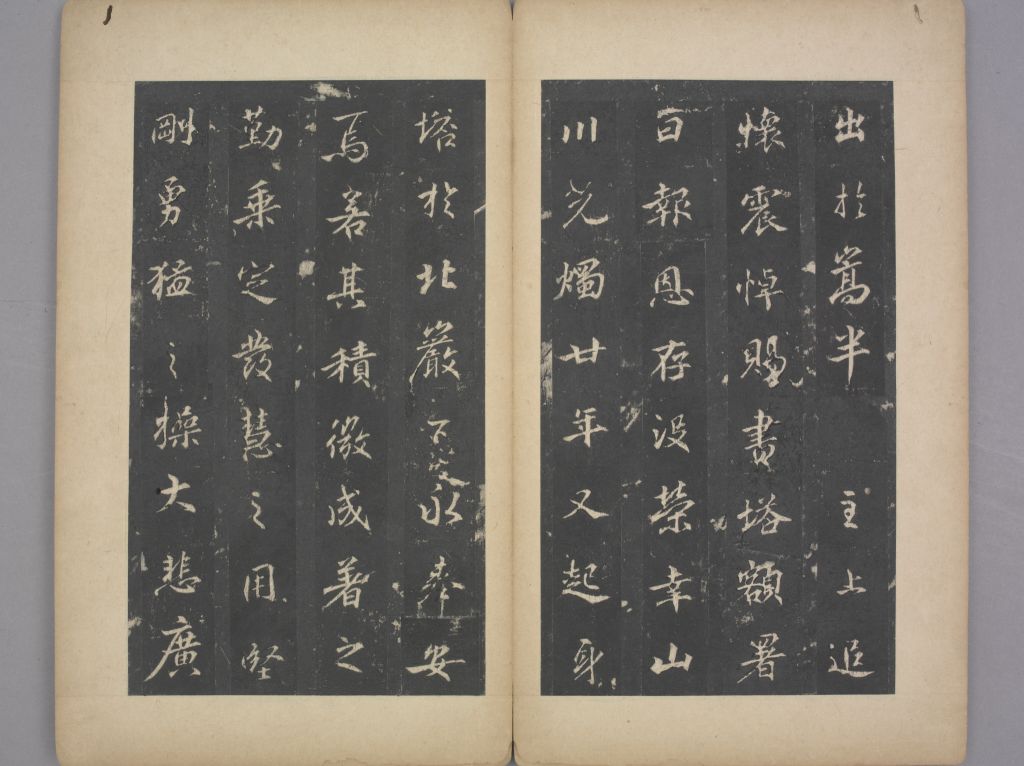 出於嵩半主上追
懷震悼賜書塔額署
曰報恩存没榮幸山
川光燭廿年又起身
塔於北巖下
永奉安
焉若其積微成著之
勤乘定發慧之用堅
剛勇猛之操大悲廣